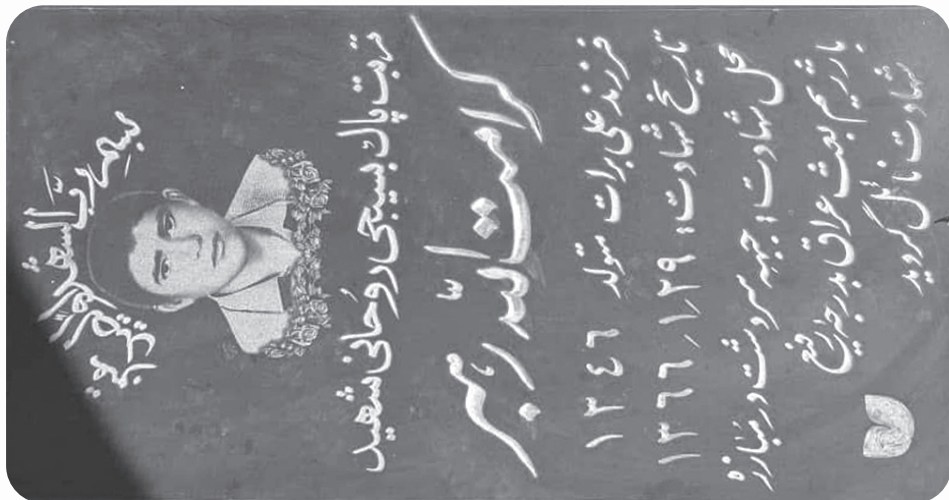 بنام رب الشهداء والصدیقین
تربت پاک بسیجی روحانی شهید
کرامت الله رهبر
فرزند علی برات متولد ۱۳۴۶
تاریخ شهادت: ۱۳۶۶/۱/۲۹
محل شهادت: جبهه سردشت در مبارزه
با رژیم بعث عراق بدرجه رفیع
شهادت نائل گردید